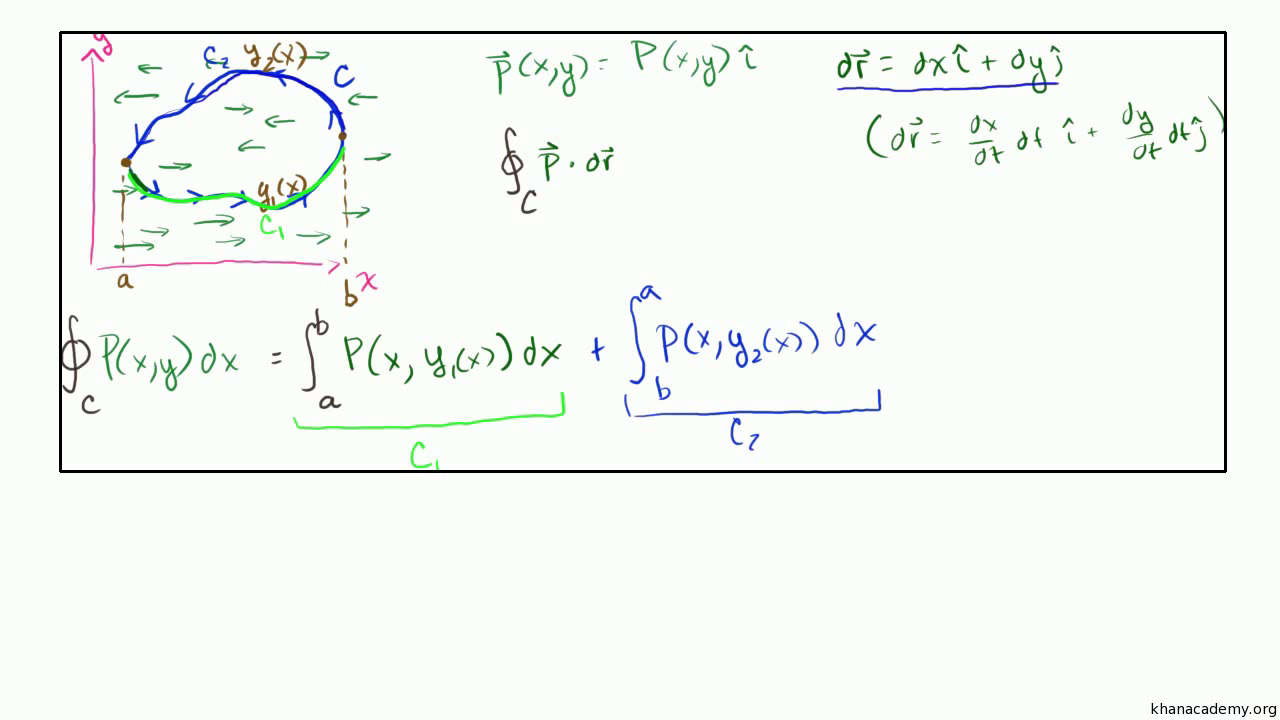 y
C₂ y₂(x) C
y₁(x)
C₁
a
b x
P⃗(x,y) = P(x,y) î
dr⃗ = dx î + dy ĵ
(dr⃗ = dx/dt dt î + dy/dt dt ĵ)
∮_C P⃗ · dr⃗
∮_C P(x,y) dx = ∫_a^b P(x, y₁(x)) dx + ∫_b^a P(x, y₂(x)) dx
C₁ C₂
khanacademy.org